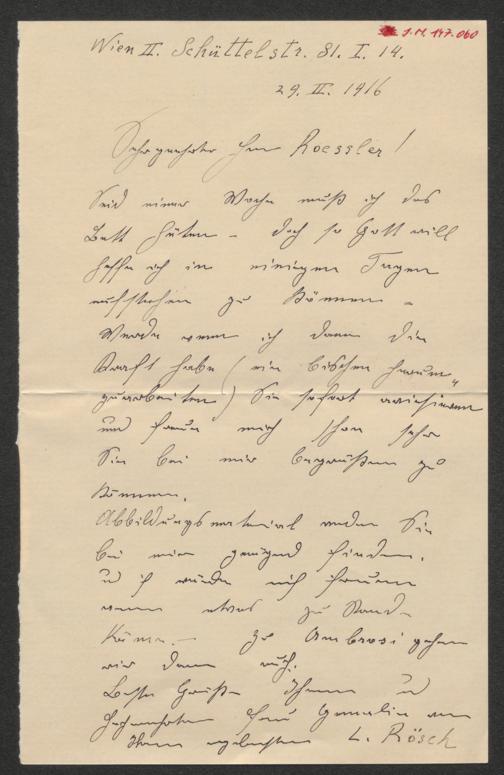 J.N. 147.060
Wien II. Schüttelstr. 81. I. 14.
29. II. 1916
Sehr geehrter Herr Roessler!
Seid einer Woche muß ich das
Bett hüten – doch so Gott will
hoffe ich in einigen Tagen
aufstehen zu können –
Werde wenn ich dann die
Kraft habe (ein bischen herum
zuarbeiten) Sie sofort avisieren
und freue mich schon sehr
Sie bei mir begrüßen zu
können.
Abbildungsmaterial werden Sie
bei mir genügend finden.
und ich würde mich freuen
wenn etwas zu Stand
käme. – Zu Ambrosi gehen
wir dann auch.
Beste Grüße Ihnen und
Frau Gemalin von
Ihrem ergebensten L. Rösch